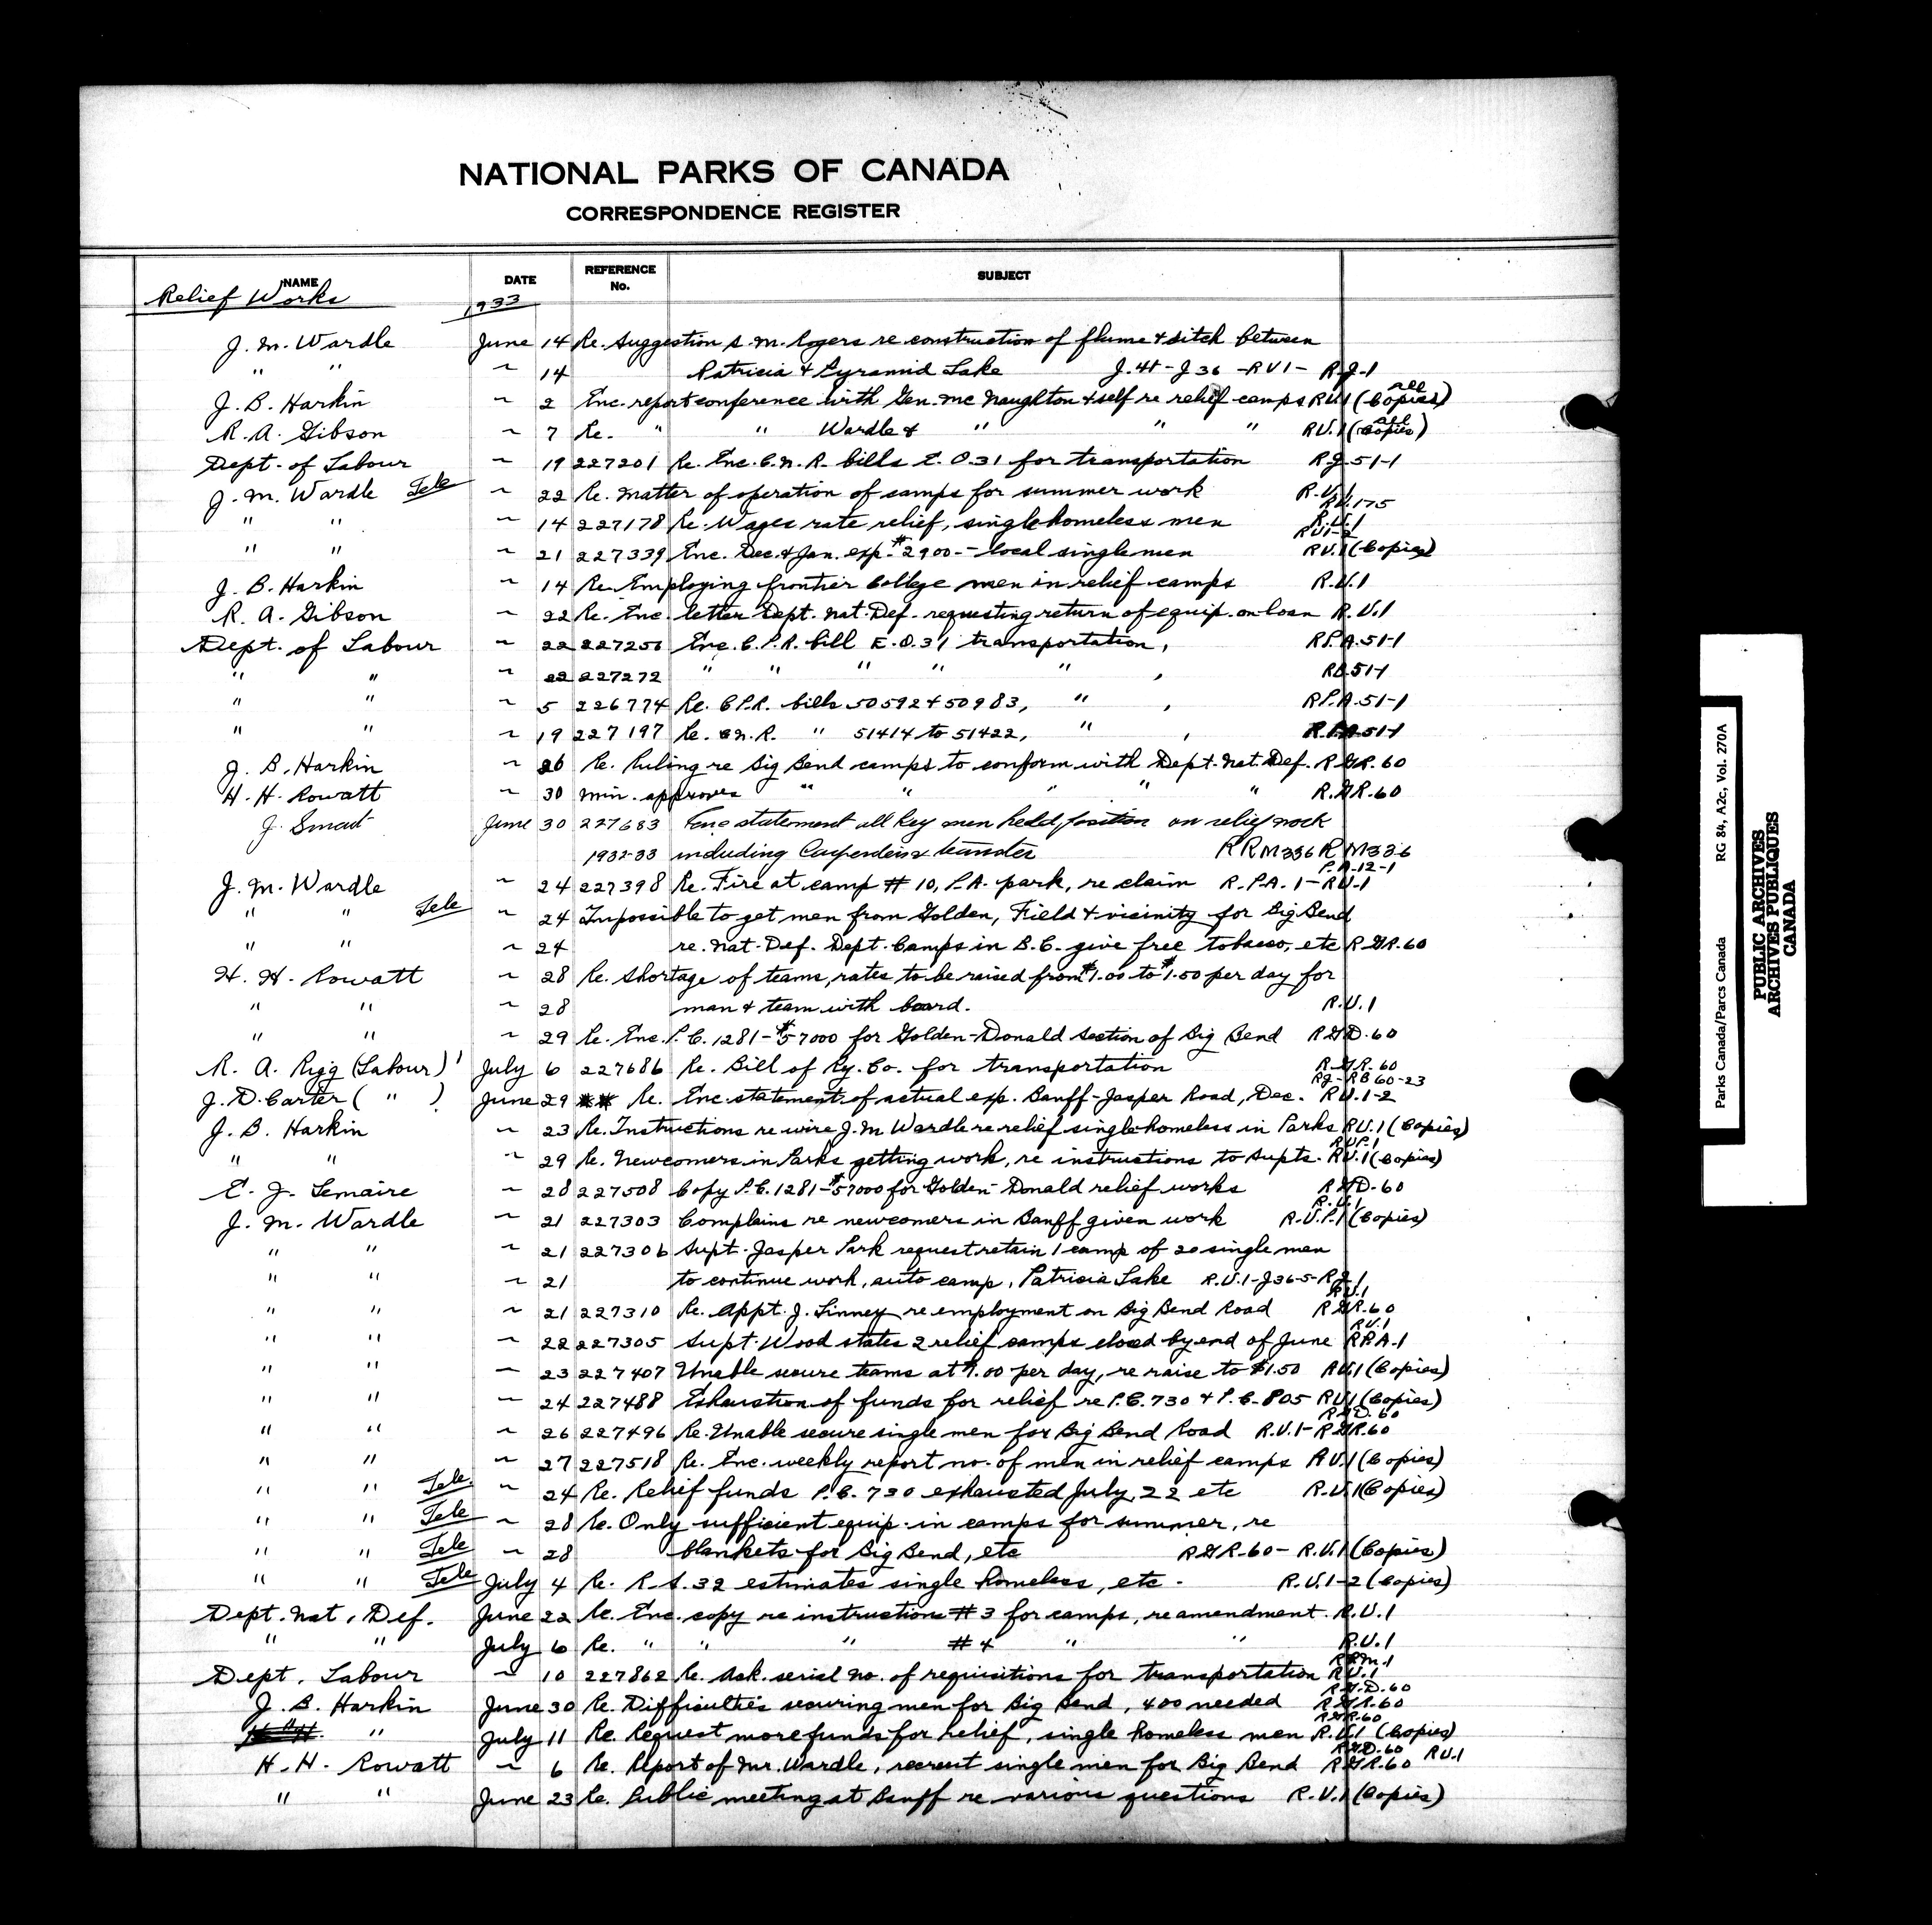 NATIONAL PARKS OF CANADA
CORRESPONDENCE REGISTER
NAME DATE REFERENCE No. SUBJECT
Relief Works 1933
J. M. Wardle June 14 Re. Suggestion S. M. Rogers re construction of flume & ditch between
" " ~ 14 Patricia & Pyramid Lake J.41-J36-RV1-R.J-1
J. B. Harkin ~ 2 Enc. report conference with Gen. McNaughton & self re relief camps RV.1 (all Copies)
R. A. Gibson ~ 7 Re. " " Wardle & " " " RV.1 (all Copies)
Dept. of Labour ~ 19 227201 Re. Enc. C.N.R. bills E.O.31 for transportation R.J-51-1
J. M. Wardle Tele ~ 22 Re. matter of operation of camps for summer work R.V.1
" " ~ 14 227178 Re. Wages rate relief, single homeless men RV.175 R.V.1
" " ~ 21 227339 Enc. Dec. & Jan. exp. $2900.- local single men RV1-2 RV.1 (Copies)
J. B. Harkin ~ 14 Re. Employing frontier College men in relief camps R.V.1
R. A. Gibson ~ 22 Re. Enc. letter Dept. Nat. Def. requesting return of equip. on loan R.V.1
Dept. of Labour ~ 22 227256 Enc. C.P.R. bill E.O.31 transportation, RP.A.51-1
" " ~ 22 227272 " " " " " , RB.51-1
" " ~ 5 226774 Re. C.P.R. bills 50592 & 50983, " , RP.A.51-1
" " ~ 19 227197 Re. C.N.R. " 51414 to 51422, " , R.P.A.51-1
J. B. Harkin ~ 26 Re. Ruling re Big Bend camps to conform with Dept. Nat. Def. R.GR.60
H. H. Rowatt ~ 30 Min. approves " " " " " R.GR.60
J. Smart June 30 227683 Enc statement all key men held position on relief work
1932-33 including Carpenters & teamster RRM336 RM336
J. M. Wardle ~ 24 227398 Re. Fire at camp # 10, P.A. park, re claim R.P.A.1-RV.1 P.A.12-1
" " Tele ~ 24 Impossible to get men from Golden, Field & vicinity for Big Bend
" " ~ 24 re. Nat. Def. Dept. Camps in B.C. give free tobacco, etc R.GR.60
H. H. Rowatt ~ 28 Re. Shortage of teams, rates to be raised from $1.00 to $1.50 per day for
" " ~ 28 man & team with board. R.V.1
" " ~ 29 Re. Enc. P.C. 1281-$57000 for Golden-Donald section of Big Bend R.GD.60
R. A. Rigg (Labour) July 6 227686 Re. Bill of Ry. Co. for transportation R.GR.60
J. D. Carter ( " ) June 29 Re. Enc. statement of actual exp. Banff-Jasper Road, Dec. RJ-RB60-23 RV.1-2
J. B. Harkin ~ 23 Re. Instructions re wire J. M Wardle re relief single homeless in Parks RV.1 (Copies)
" " ~ 29 Re. Newcomers in Parks getting work, re instructions to Supts. RVP.1 RV.1 (Copies)
E. J. Lemaire ~ 28 227508 Copy P.C. 1281-$57000 for Golden-Donald relief works R.GD-60
J. M. Wardle ~ 21 227303 Complains re newcomers in Banff given work R.V.1 R.V.P.1 (Copies)
" " ~ 21 227306 Supt. Jasper Park request retain 1 camp of 20 single men
" " ~ 21 to continue work, auto camp, Patricia Lake R.V.1-J36-5-RJ.1
" " ~ 21 227310 Re. Appt. J. Linney re employment on Big Bend Road RV.1 R.GR.60
" " ~ 22 227305 Supt. Wood states 2 relief camps closed by end of June RV.1 RPA.1
" " ~ 23 227407 Unable secure teams at $1.00 per day, re raise to $1.50 RV.1 (Copies)
" " ~ 24 227488 Exhaustion of funds for relief re P.C. 730 & P.C. 805 RV.1 (Copies)
" " ~ 26 227496 Re. Unable secure single men for Big Bend Road R.V.1-R.GR.60 R.GD.60
" " ~ 27 227518 Re. Enc. weekly report no. of men in relief camps RV.1 (Copies)
" " Tele. ~ 24 Re. Relief funds P.C. 730 exhausted July 22 etc R.V.1 (Copies)
" " Tele ~ 28 Re. Only sufficient equip. in camps for summer, re
" " Tele ~ 28 blankets for Big Bend, etc R.GR.60-R.V.1 (Copies)
" " Tele July 4 Re. R.S. 32 estimates single homeless, etc. R.V.1-2 (Copies)
Dept. Nat. Def. June 22 Re. Enc. copy re instructions # 3 for camps, re amendment. R.V.1
" " July 6 Re. " " " # 4 " " R.V.1
Dept. Labour ~ 10 227862 Re. Ask. serial no. of requisitions for transportation RRM.1 RV.1
J. B. Harkin June 30 Re. Difficulties securing men for Big Bend, 400 needed R.G.D.60 R.GR.60
" July 11 Re. Request more funds for relief, single homeless men R.GR.60 R.V.1 (Copies)
H. H. Rowatt ~ 6 Re. Report of Mr. Wardle, recruit single men for Big Bend R.GD.60 R.GR.60 RV.1
" " June 23 Re. Public meeting at Banff re various questions R.V.1 (Copies)
Parks Canada/Parcs Canada RG 84, A2c, Vol. 270A
PUBLIC ARCHIVES
ARCHIVES PUBLIQUES
CANADA